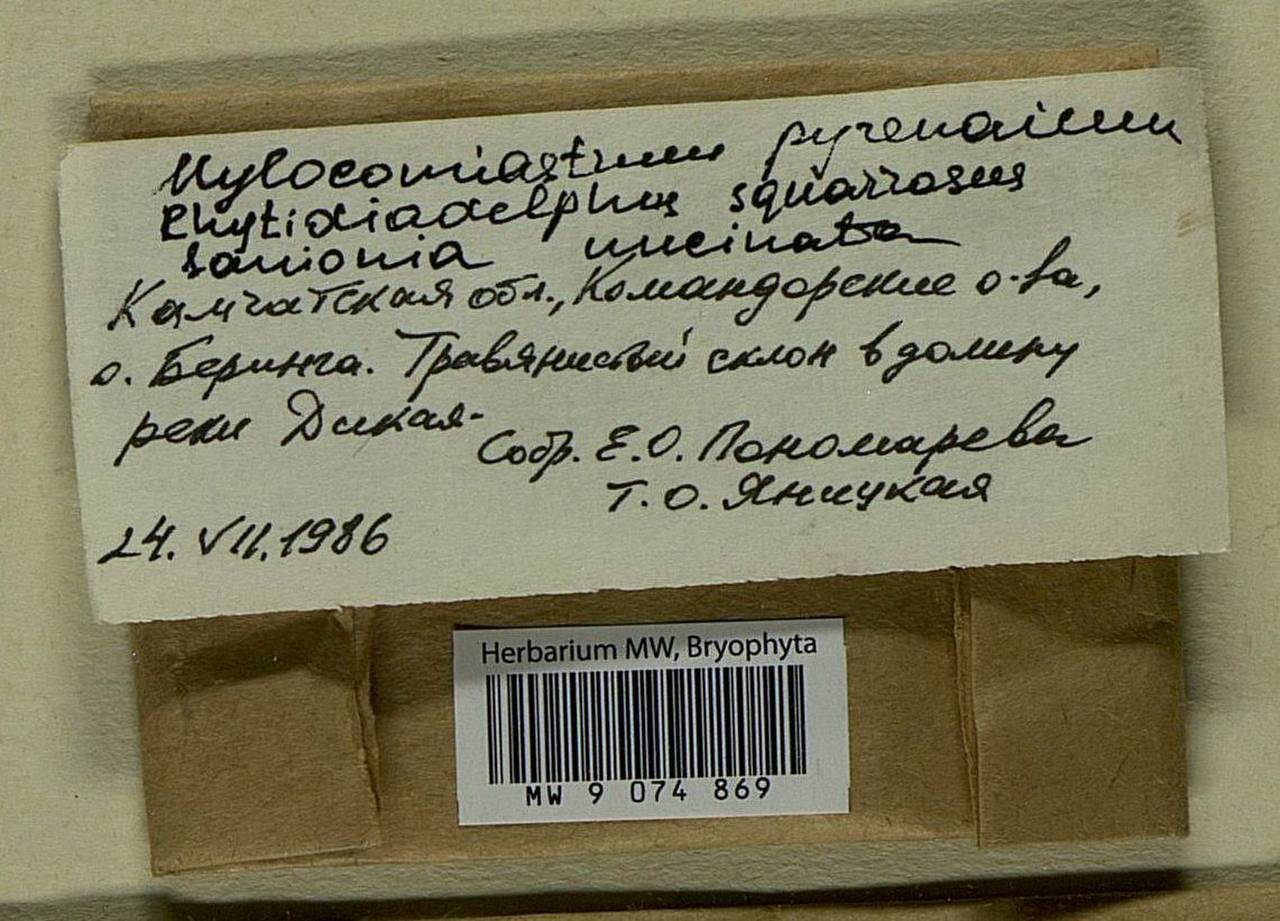 Hylocomiastrum pyrenaicum
Rhytidiadelphus squarrosus
Sanionia uncinata
Камчатская обл., Командорские о-ва,
о. Беринга. Травянистый склон в долину
реки Дикая.
Собр. Е.О. Пономарева
Т.О. Яницкая
24.VII.1986
Herbarium MW, Bryophyta
MW 9 074 869